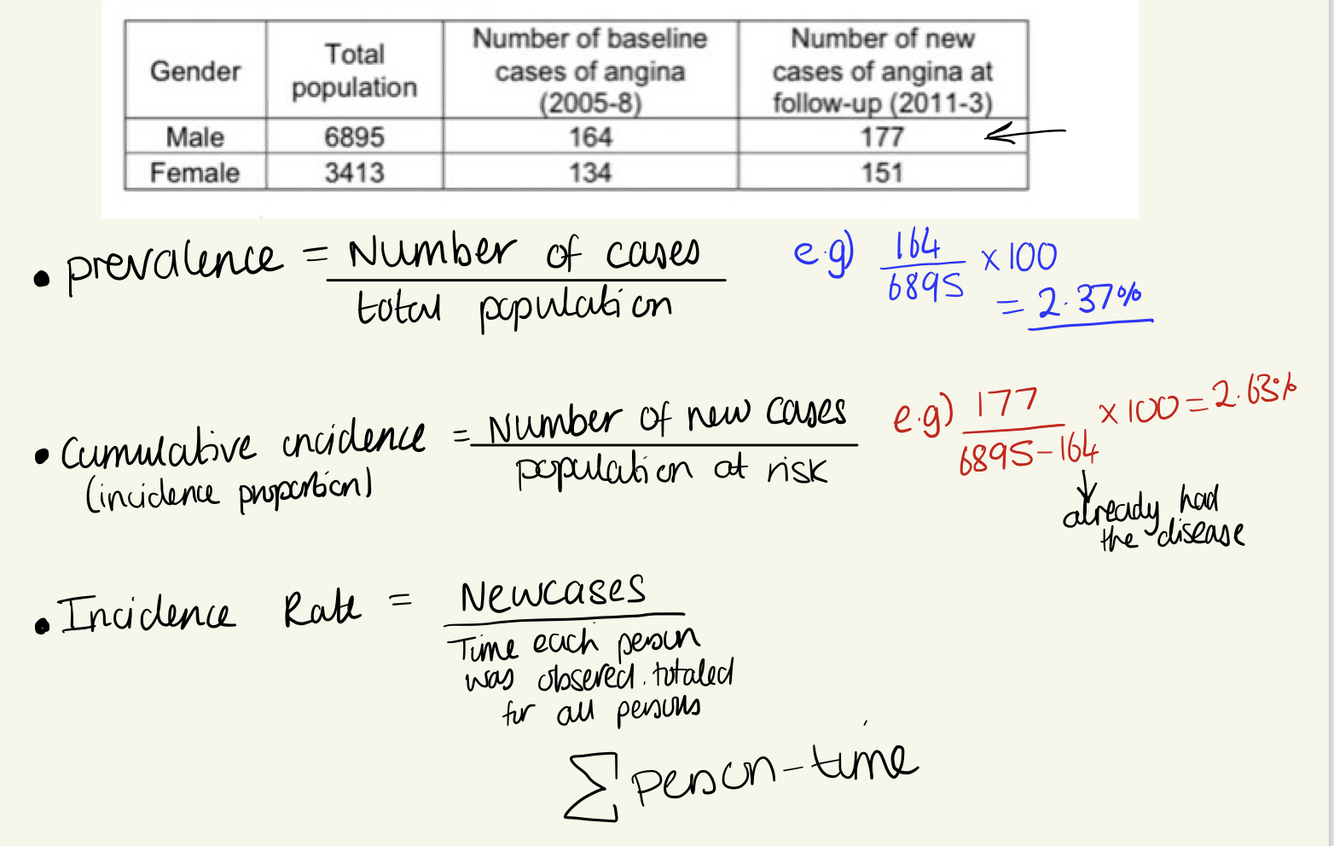 Gender
Total population
Number of baseline cases of angina (2005-8)
Number of new cases of angina at follow-up (2011-3)
Male 6895 164 177
Female 3413 134 151
• prevalence = Number of cases
total population
e.g) 164
6895
x 100
= 2.37%
• Cumulative incidence = Number of new cases
(incidence proportion)
population at risk
e.g) 177
6895-164
x 100 = 2.63%
already had
the disease
• Incidence Rate = New cases
Time each person
was obsered. totaled
for all persons
∑ person-time